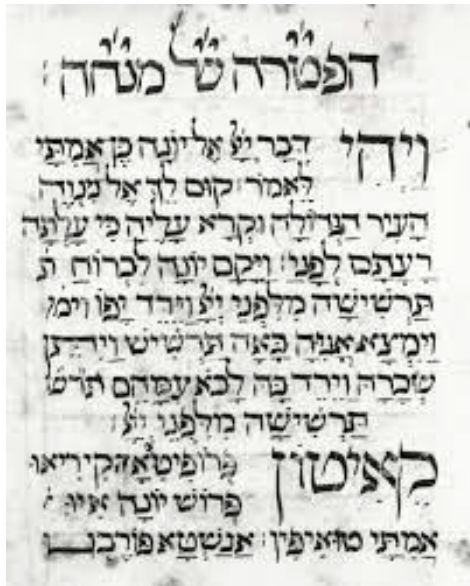 הפטרה של מנחה
וַיְהִי דְּבַר יְיָ אֶל יוֹנָה בֶן אֲמִתַּי
לֵאמֹר׃ קוּם לֵךְ אֶל נִינְוֵה
הָעִיר הַגְּדוֹלָה וּקְרָא עָלֶיהָ כִּי עָלְתָה
רָעָתָם לְפָנָי׃ וַיָּקָם יוֹנָה לִבְרוֹחַ ת
תַּרְשִׁישָׁה מִלִּפְנֵי יְיָ וַיֵּרֶד יָפוֹ וימ
וַיִּמְצָא אֳנִיָּה בָּאָה תַרְשִׁישׁ וַיִּתֵּן
שְׂכָרָהּ וַיֵּרֶד בָּהּ לָבֹא עִמָּהֶם תרש
תַּרְשִׁישָׁה מִלִּפְנֵי יְיָ׃
קֵאֵיטוֹן פְּרוֹפִיטִאָה קִירִיאוּ
פְּרוֹשׁ יוֹנָה אִיוּ
אֲמִתַּי טוּאִיפִּין׃ אַנַשְׁטָא